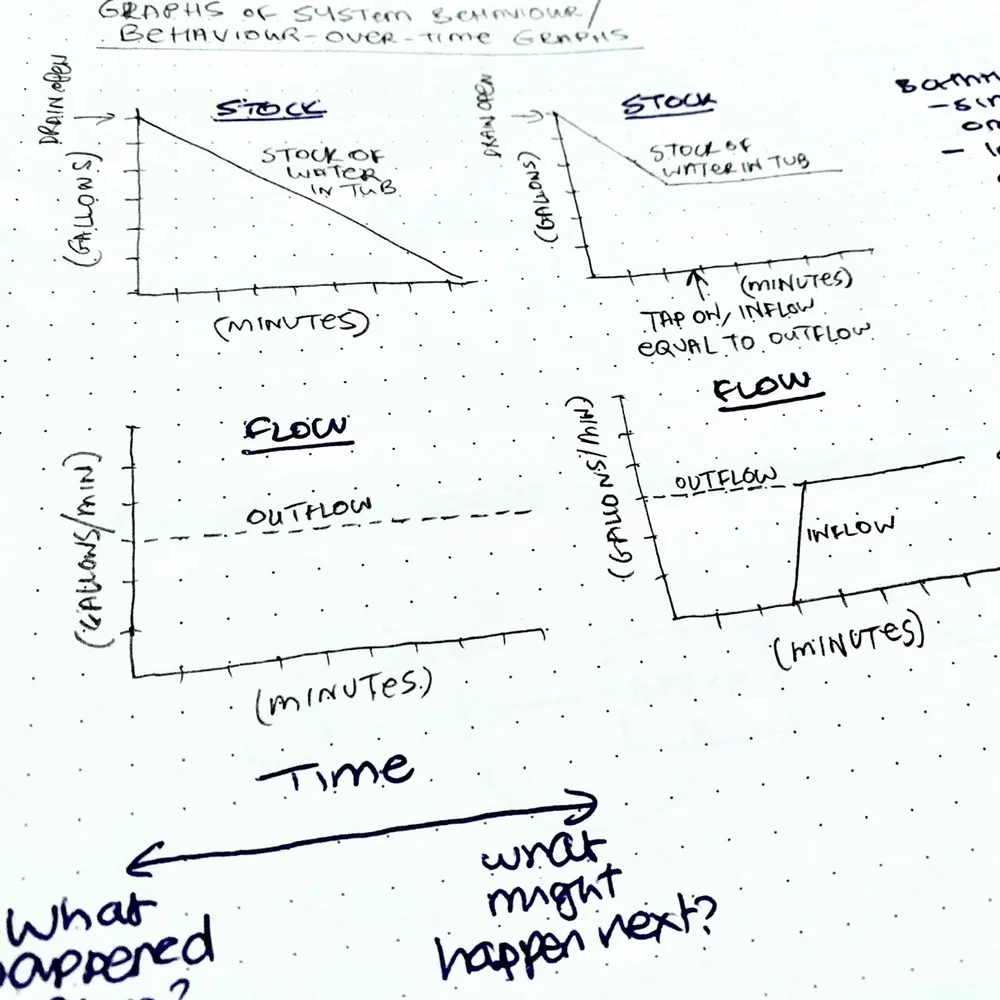 GRAPHS OF SYSTEM BEHAVIOUR/
BEHAVIOUR-OVER-TIME GRAPHS
STOCK
DRAIN OPEN
(GALLONS)
STOCK OF
WATER
IN TUB
(MINUTES)
STOCK
DRAIN OPEN
(GALLONS)
STOCK OF
WATER IN TUB
(MINUTES)
TAP ON, INFLOW
EQUAL TO OUTFLOW
FLOW
(GALLONS/MIN)
OUTFLOW
(MINUTES)
FLOW
(GALLONS/MIN)
OUTFLOW
INFLOW
(MINUTES)
Time
What
happened
what
might
happen next?